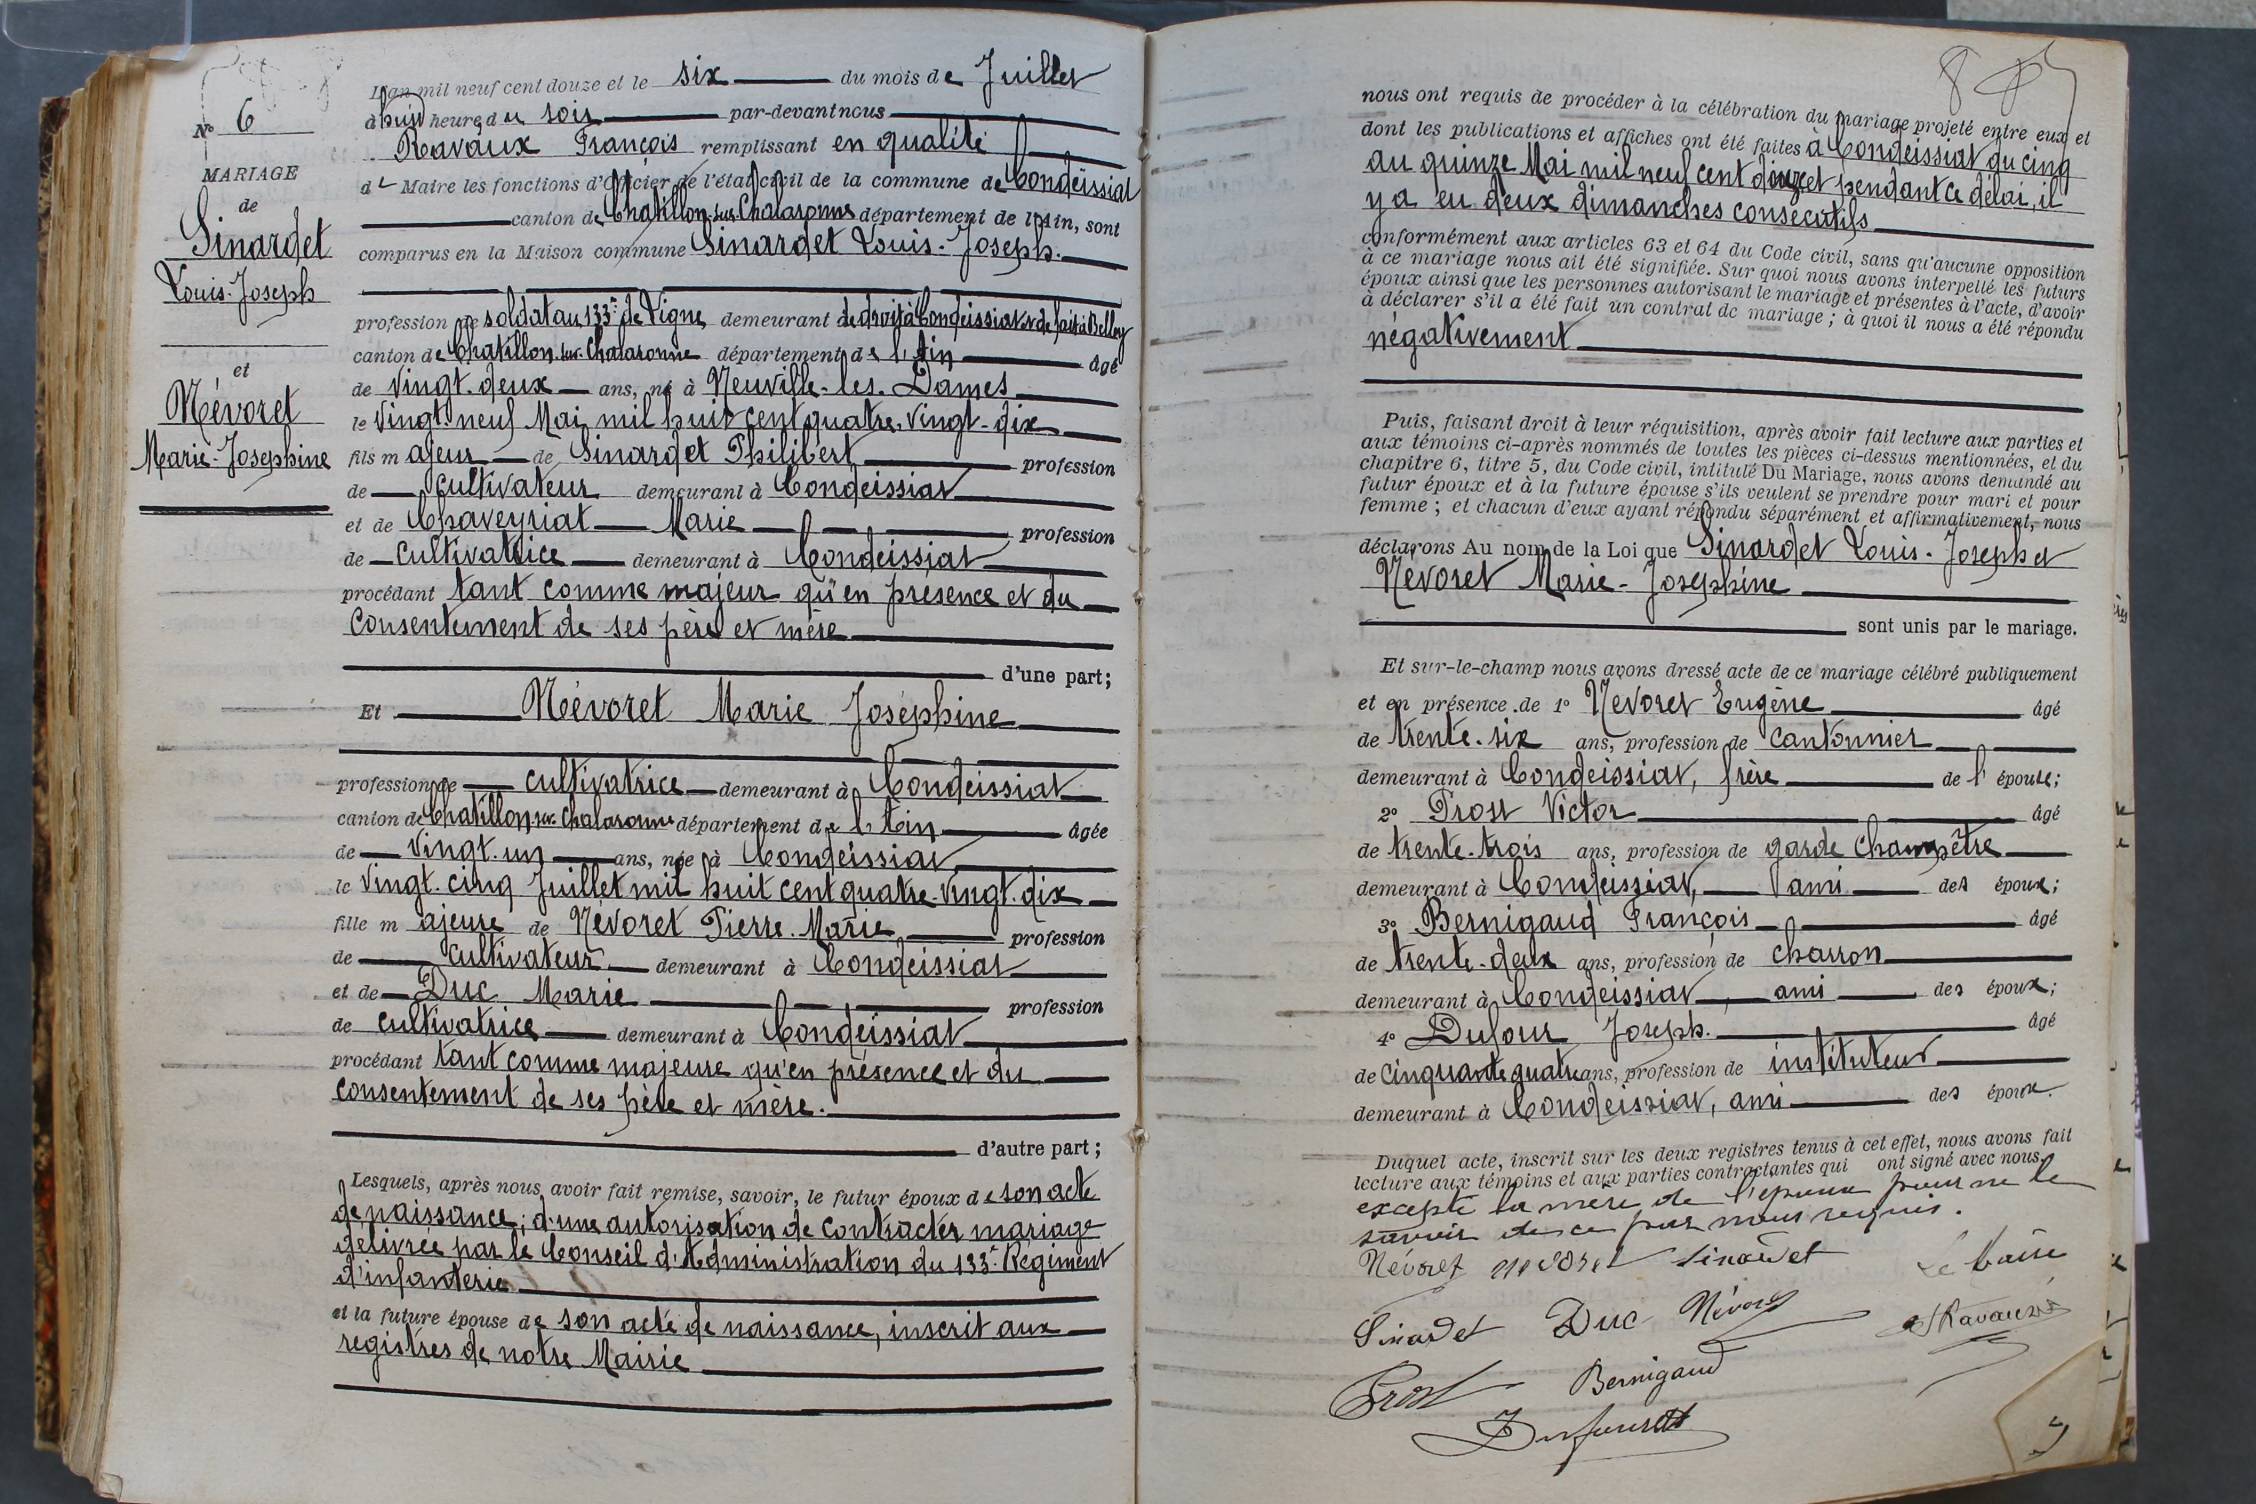 N° 6
MARIAGE
de
Sinardet
Louis-Joseph
et
Névoret
Marie-Josephine
L'an mil neuf cent douze et le six du mois de Juillet
à huit heures du soir par-devant nous
Ravaux François remplissant en qualité
de Maire les fonctions d'Officier de l'état civil de la commune de Condeissiat
canton de Chatillon-sur-Chalaronne département de l'Ain, sont
comparus en la Maison commune Sinardet Louis-Joseph.
profession de soldat au 133e de Ligne demeurant de droit à Condeissiat et de fait à Belley
canton de Chatillon-sur-Chalaronne département de l'Ain âgé
de vingt-deux ans, né à Neuville-les-Dames
le vingt-neuf Mai mil huit cent quatre-vingt-dix
fils majeur de Sinardet Philibert profession
de cultivateur demeurant à Condeissiat
et de Chaveyriat Marie profession
de cultivatrice demeurant à Condeissiat
procédant tant comme majeur qu'en présence et du
consentement de ses père et mère
d'une part;
Et Névoret Marie Joséphine
profession de cultivatrice demeurant à Condeissiat
canton de Chatillon-sur-Chalaronne département de l'Ain âgée
de vingt-un ans, née à Condeissiat
le vingt-cinq Juillet mil huit cent quatre-vingt-dix
fille majeure de Névoret Pierre-Marie profession
de cultivateur demeurant à Condeissiat
et de Duc Marie profession
de cultivatrice demeurant à Condeissiat
procédant tant comme majeure qu'en présence et du
consentement de ses père et mère.
d'autre part;
Lesquels, après nous avoir fait remise, savoir, le futur époux de son acte
de naissance; d'une autorisation de contracter mariage
délivrée par le Conseil d'Administration du 133e Régiment
d'infanterie
et la future épouse de son acte de naissance, inscrit aux
registres de notre Mairie
nous ont requis de procéder à la célébration du mariage projeté entre eux et
dont les publications et affiches ont été faites à Condeissiat du cinq
au quinze Mai mil neuf cent douze et pendant ce délai, il
y a eu deux dimanches consécutifs
conformément aux articles 63 et 64 du Code civil, sans qu'aucune opposition
à ce mariage nous ait été signifiée. Sur quoi nous avons interpellé les futurs
époux ainsi que les personnes autorisant le mariage et présentes à l'acte, d'avoir
à déclarer s'il a été fait un contrat de mariage; à quoi il nous a été répondu
négativement
Puis, faisant droit à leur réquisition, après avoir fait lecture aux parties et
aux témoins ci-après nommés de toutes les pièces ci-dessus mentionnées, et du
chapitre 6, titre 5, du Code civil, intitulé Du Mariage, nous avons demandé au
futur époux et à la future épouse s'ils veulent se prendre pour mari et pour
femme; et chacun d'eux ayant répondu séparément et affirmativement, nous
déclarons Au nom de la Loi que Sinardet Louis-Joseph et
Névoret Marie-Josephine
sont unis par le mariage.
Et sur-le-champ nous avons dressé acte de ce mariage célébré publiquement
et en présence de 1° Névoret Eugène âgé
de trente-six ans, profession de cantonnier
demeurant à Condeissiat, frère de l'épouse;
2° Prost Victor âgé
de trente-trois ans, profession de garde champêtre
demeurant à Condeissiat, ami des époux;
3° Bernigaud François âgé
de trente-deux ans, profession de charron
demeurant à Condeissiat, ami des époux;
4° Dufour Joseph. âgé
de cinquante quatre ans, profession de instituteur
demeurant à Condeissiat, ami des époux.
Duquel acte, inscrit sur les deux registres tenus à cet effet, nous avons fait
lecture aux témoins et aux parties contractantes qui ont signé avec nous,
excepté la mère de l'époux pour ne le
savoir de ce par nous requis.
Névoret Névoret Sinardet Le Maire
Sinardet Duc Névoret Ravaux
Prost Bernigaud
Dufour